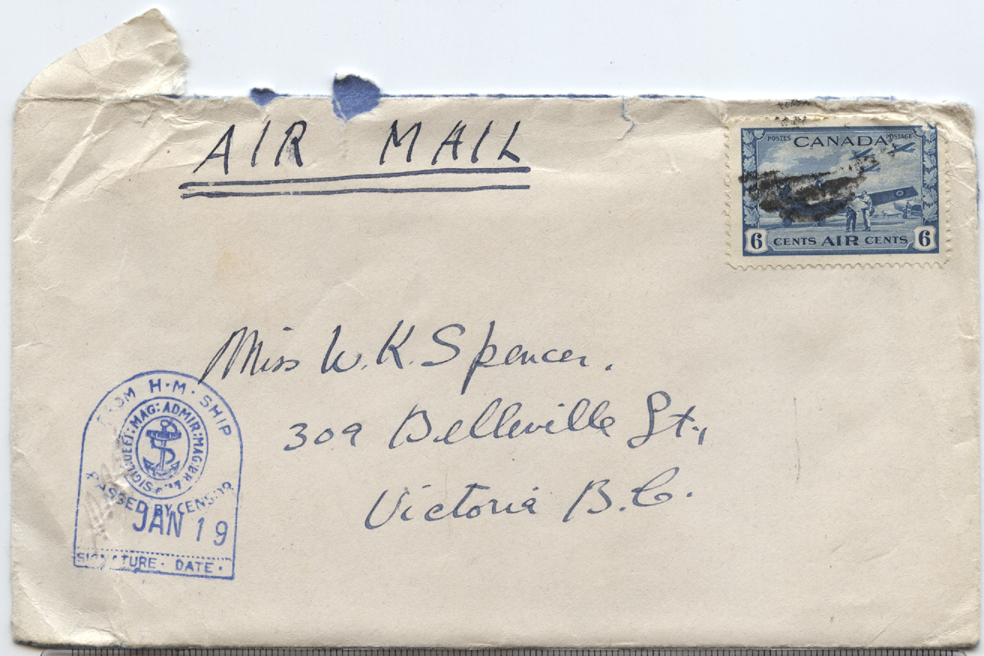 AIR MAIL
POSTES CANADA POSTAGE
6 CENTS AIR CENTS 6
Miss W. K. Spencer.
309 Belleville St.,
Victoria B.C.
FROM H·M·SHIP
PASSED BY CENSOR
JAN 19
SIGNATURE · DATE ·